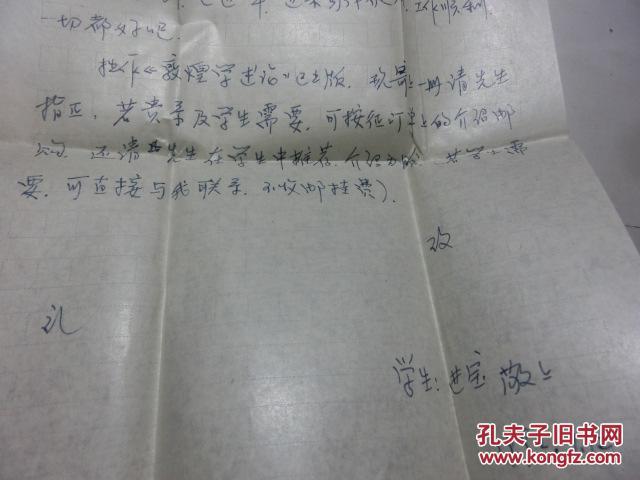 工作顺利.
一切都好吧.
拙作《敦煌学述论》已出版. 现寄一册请先生
指正, 若贵系及学生需要, 可按征订单上的介绍邮
购. 还请先生在学生中推荐. 介绍 (若学生需
要, 可直接与我联系. 不收邮挂费).
致
礼
学生: 进宝 敬上
孔夫子旧书网
www.kongfz.com